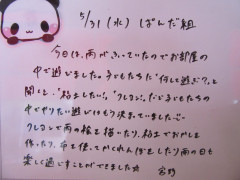 5/31（水）ぱんだ組
今日は、雨がふっていたのでお部屋の
中で遊びました。子どもたちに"何して遊ぶ？"と
聞くと、"粘土したい！"、"クレヨン！"、だと子どもたちの
中でやりたい遊びはもう決まっていました…
クレヨンで雨の絵を描いたり、粘土でおかしを
作ったり、布を使ってかくれんぼをしたり雨の日も
楽しく過ごすことができました☆